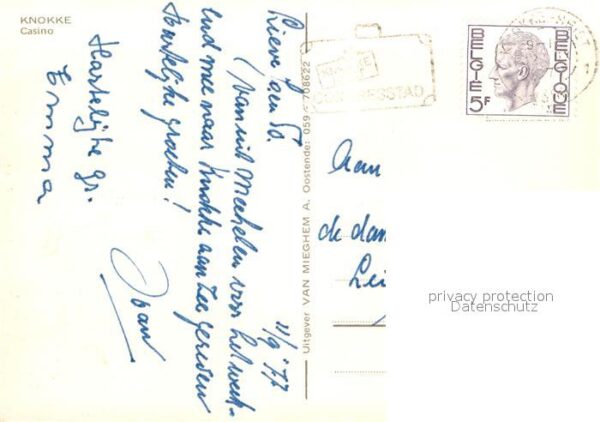 KNOKKE
Casino
11/9 '77
(vanuit Mechelen voor het week-
end mee naar Knokke aan Zee gereden
Hartelijke groeten!
Hartelijke gr.
Emma
Uitgever VAN MIEGHEM A. Oostende: 059 - 708622
KNOKKE
CONGRESSTAD
BELGIE 5F
BELGIQUE
Aan
de dam
Lei
privacy protection
Datenschutz